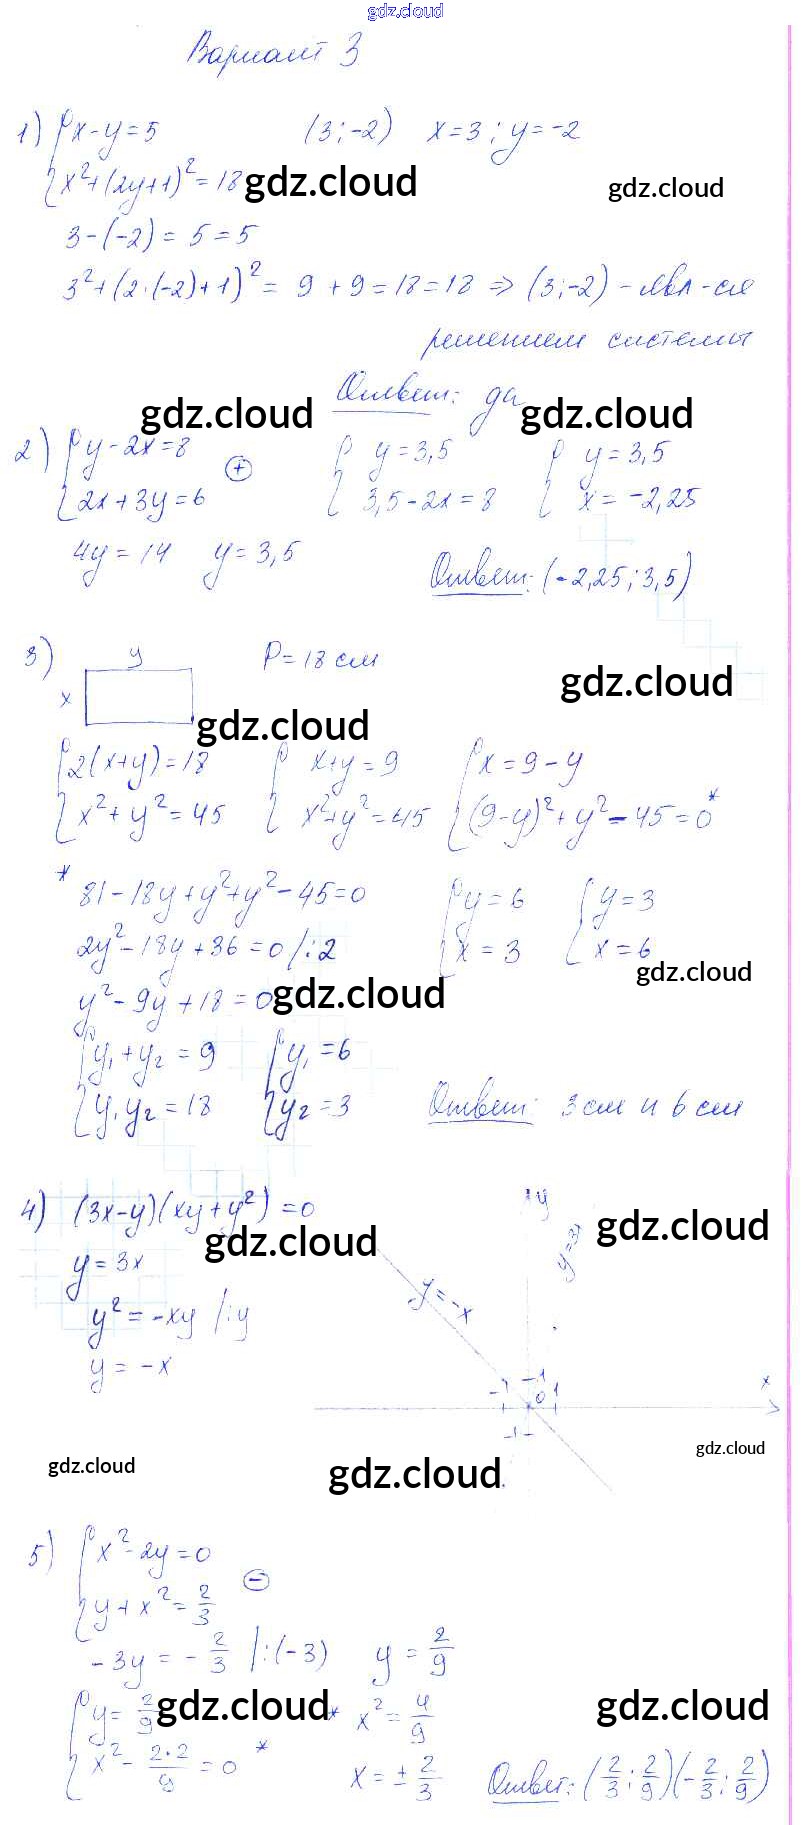 gdz.cloud
Вариант 3
1) { x-y=5 (3;-2) x=3; y=-2
{ x²+(2y+1)²=18 gdz.cloud gdz.cloud
3-(-2)=5=5
3²+(2·(-2)+1)²= 9+9=18=18 ⇒ (3;-2) - явл-ся
решением системы
Ответ: да
gdz.cloud gdz.cloud
2) { y-2x=8 ⊕ { y=3,5 { y=3,5
{ 2x+3y=6 { 3,5-2x=8 { x=-2,25
4y=14 y=3,5 Ответ: (-2,25; 3,5)
3) y P=18 см
x gdz.cloud gdz.cloud
{ 2(x+y)=18 { x+y=9 { x=9-y
{ x²+y²=45 { x²+y²=45 { (9-y)²+y²-45=0*
* 81-18y+y²+y²-45=0 { y=6 { y=3
2y²-18y+36=0 /:2 { x=3 { x=6
gdz.cloud
y²-9y+18=0 gdz.cloud
{ y₁+y₂=9 { y₁=6
{ y₁y₂=18 { y₂=3 Ответ: 3 см и 6 см
4) (3x-y)(xy+y²)=0 y y=3x gdz.cloud
gdz.cloud
y=3x y=-x
y²=-xy /:y
y=-x
-1 1 0 1 x
-1
gdz.cloud gdz.cloud gdz.cloud
5) { x²-2y=0 ⊖
{ y+x²=2/3
-3y=-2/3 |:(-3) y=2/9
{ y=2/9 gdz.cloud * x²=4/9 gdz.cloud
{ x²-2·2/9=0 * x=±2/3 Ответ: (2/3; 2/9)(-2/3; 2/9)